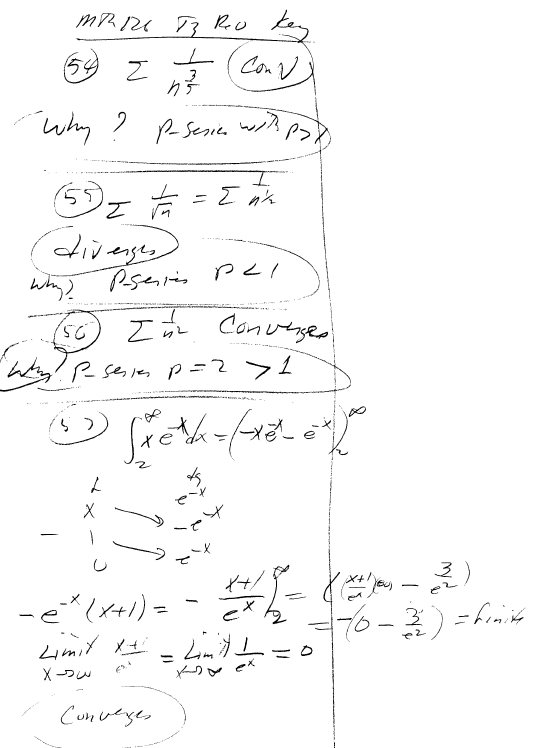 MTH 126 T3 Rev Key
(54) Σ 1/n^(3/5) Conv
Why? P-series with p>1
(55) Σ 1/√n = Σ 1/n^½
diverges
Why? P-series P<1
(56) Σ 1/n² Converges
Why? P-series p=2 >1
(57) ∫₂^∞ x e^-x dx = (-xe^-x - e^-x)₂^∞
x e^-x
- 1 -e^-x
0 e^-x
-e^-x (x+1) = - (x+1)/e^x )₂^∞ = ((x+1)/e^x)(∞) - 3/e²)
= -(0 - 3/e²) = finite
Limit x→∞ (x+1)/e^x = Limit x→∞ 1/e^x = 0
Converges